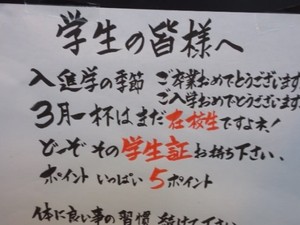 学生の皆様へ
入進学の季節 ご卒業おめでとうございます
ご入学おめでとうございます
3月一杯はまだ在校生ですよネ!
どーぞその学生証お持ち下さい、
ポイントいっぱい5ポイント
体に良い事の習慣 続けて下さい